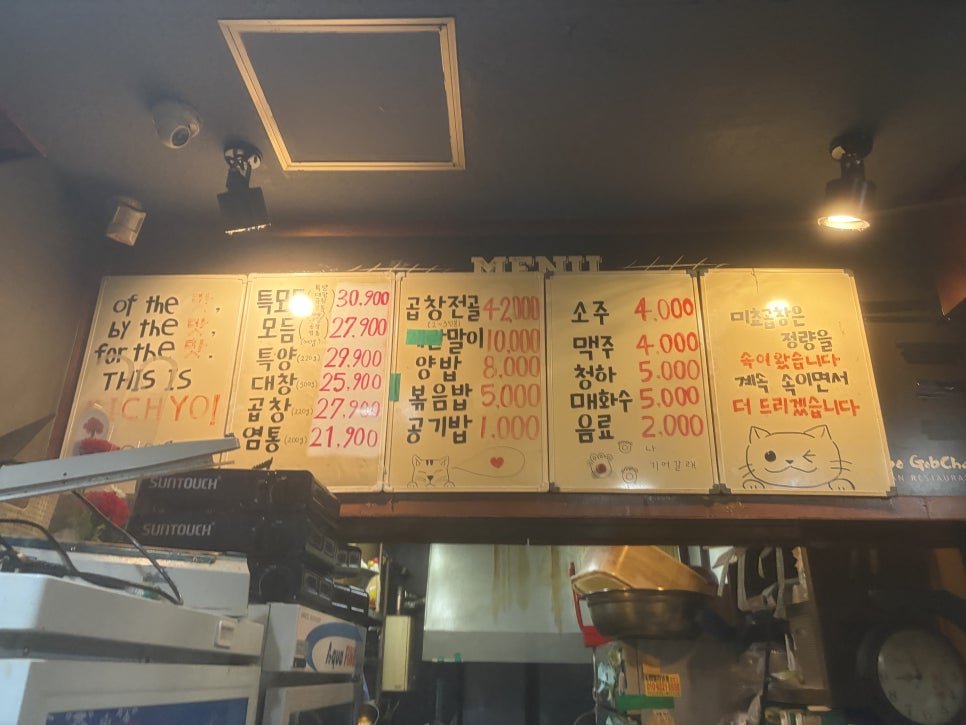 MENU
of the 맛,
by the 맛,
for the 맛,
THIS IS
MICHYO!
특모듬 30.900
모듬 27.900
특양(220g) 29.900
대창(300g) 25.900
곱창(220g) 27.900
염통(200g) 21.900
곱창전골 42000
말이 10,000
양밥 8.000
볶음밥 5,000
공기밥 1.000
소주 4.000
맥주 4.000
청하 5.000
매화수 5.000
음료 2.000
나
기어갈래
미쵸곱창은
정량을
속여왔습니다
계속 속이면서
더 드리겠습니다
SUNTOUCH
SUNTOUCH
aqua